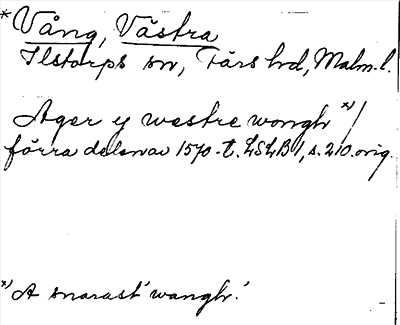 * Vång, Västra
Ilstorps sn, Färs hd, Malm. l.
Ager y westre wongh x)/
förra delen av 1570-t. LSLB 1, s. 210. orig.
x) A snarast 'wangh'.